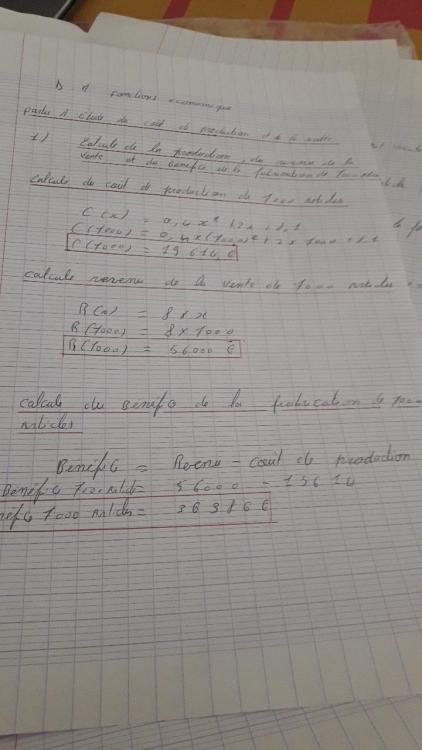 D 1 fonctions economique
partie 1 étude de coût de production et de la
1) Calcule de la production, de revenu de la
vente et du bénéfice de la fabrication de
Calcule de coût de production de 7000 articles
C(x) = 0,4x² + 2x + 1,1
C(7000) = 0,4 x (7000)² + 2 x 7000 + 1,1
C(7000) = 19 614 €
calcule revenu de la vente de 7000 articles
R(x) = 8 x x
R(7000) = 8 x 7000
R(7000) = 56000 €
calcule du Bénéfice de la fabrication de 7000
articles
Bénéfice = Revenu - coût de production
Bénéfice 7000 articles = 56000 - 19614
7000 articles = 36 386 €